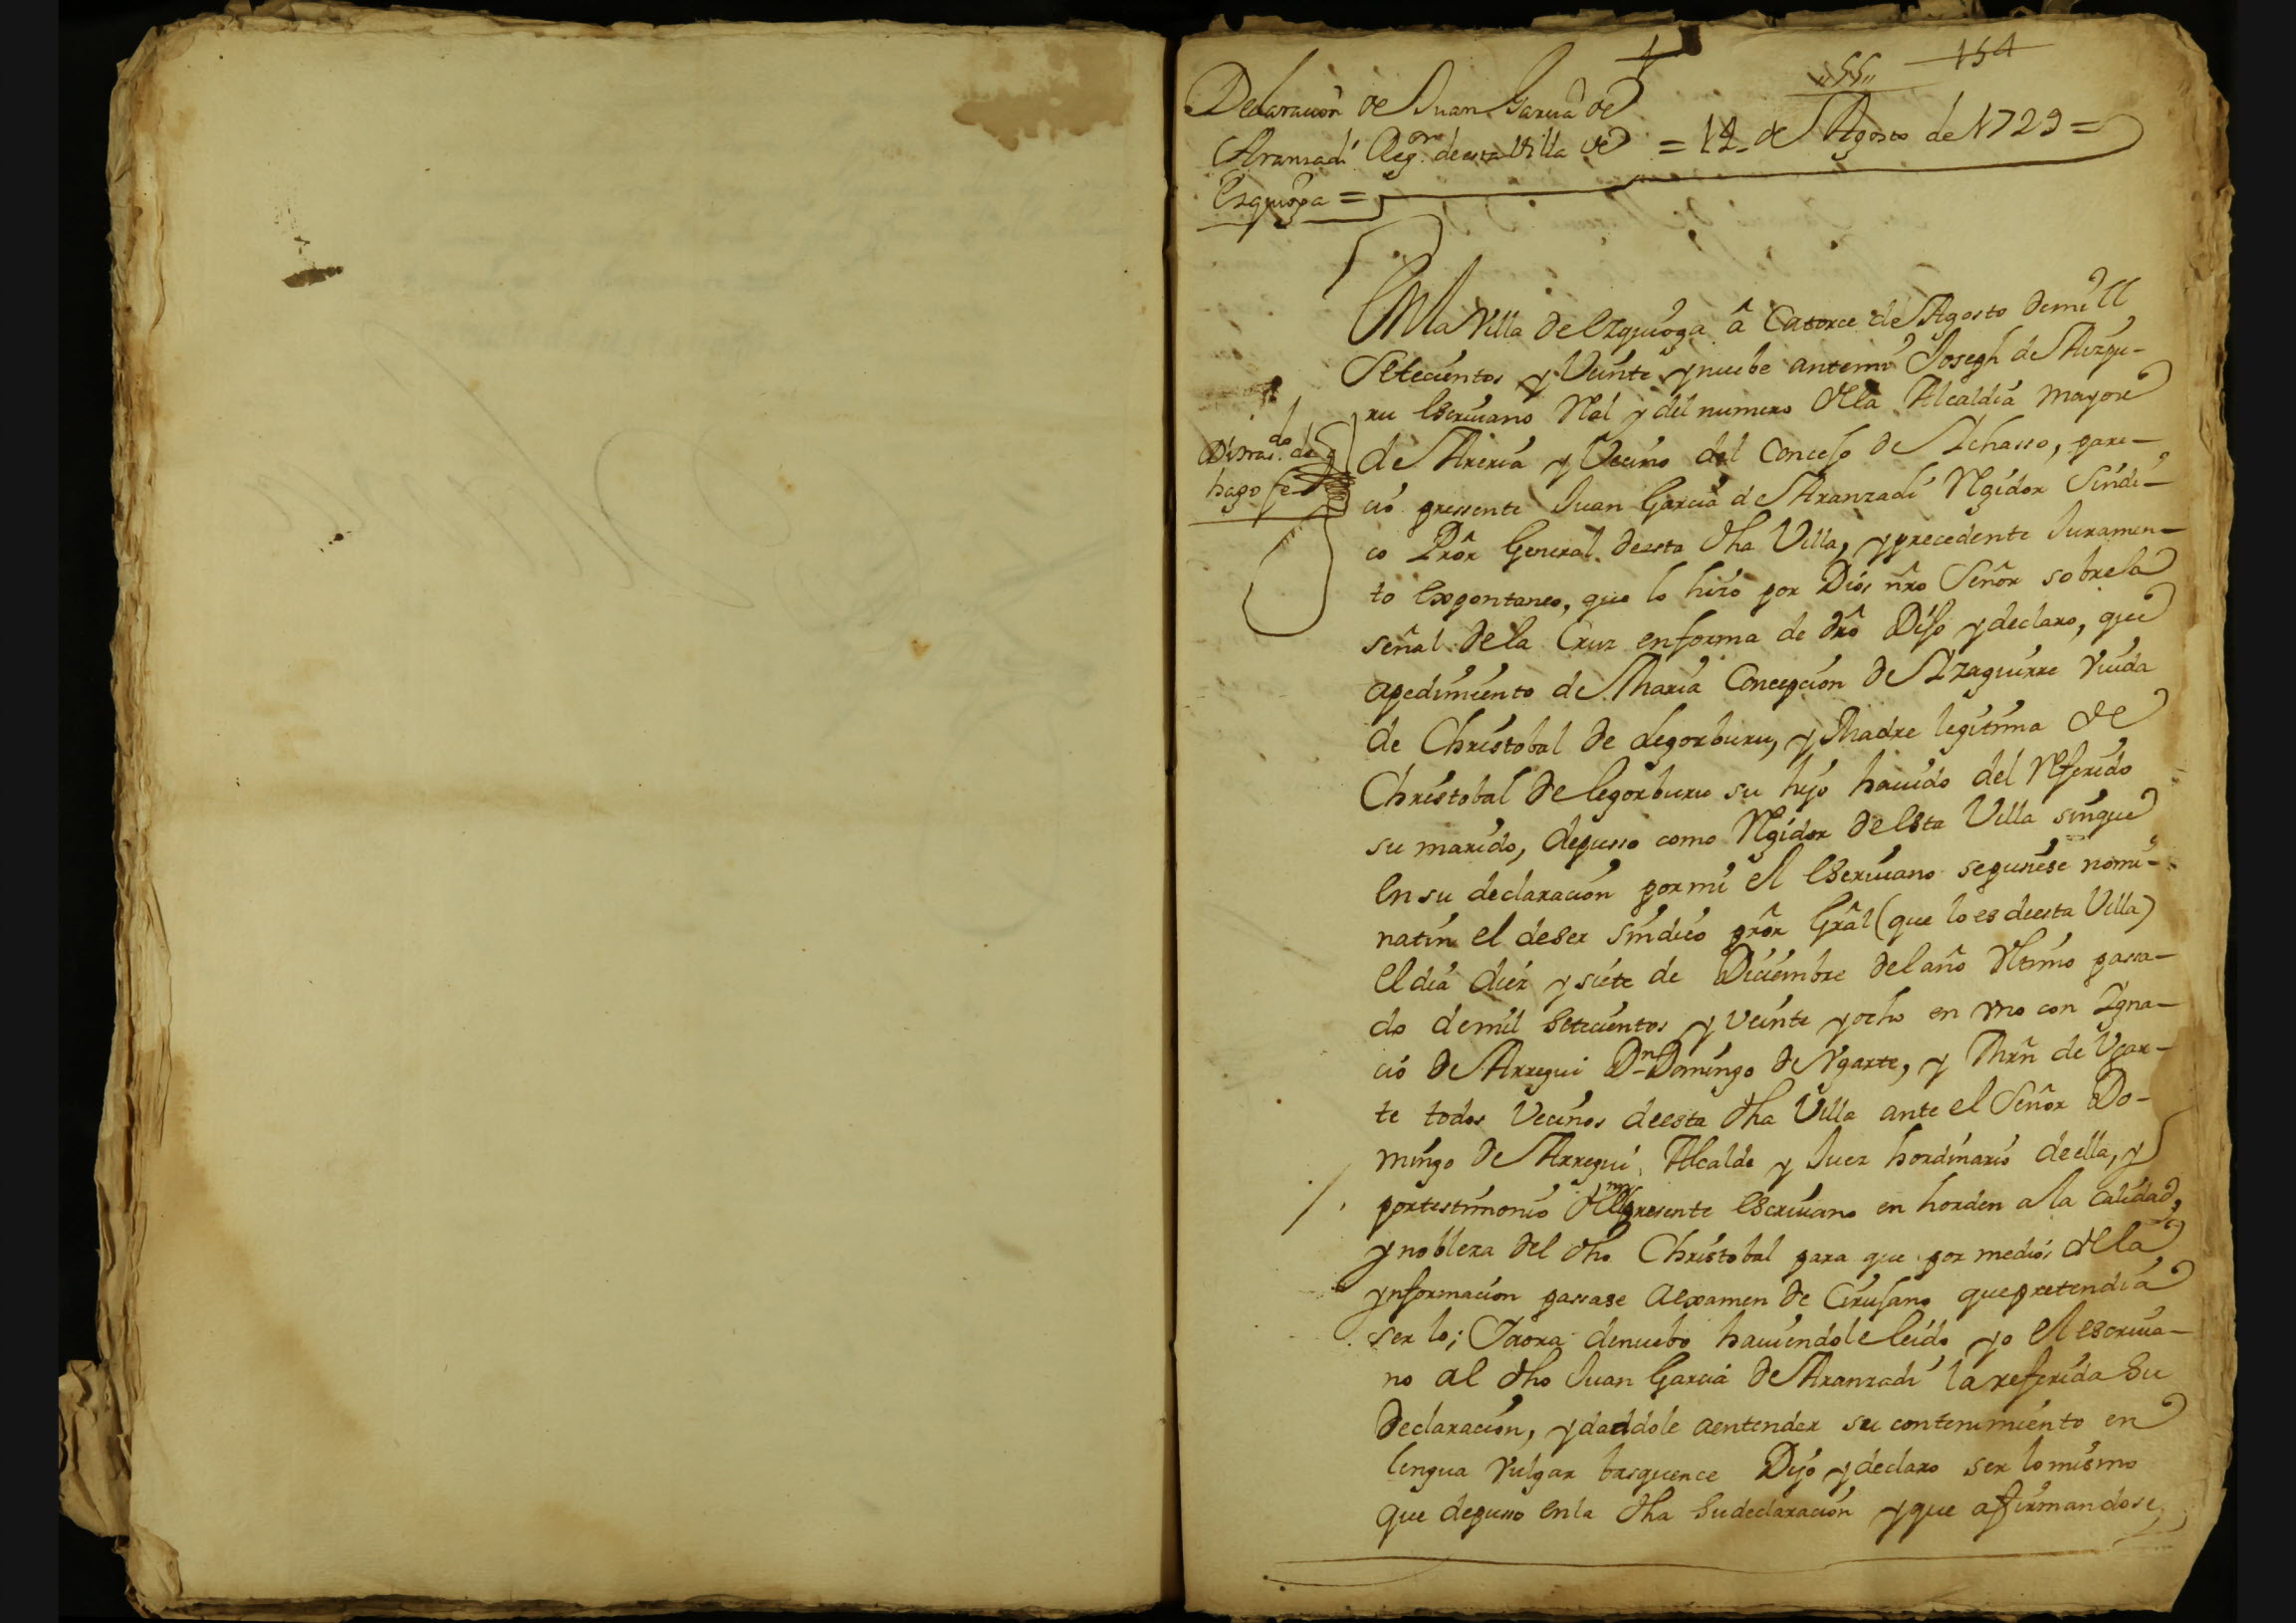 „55„ 154
Declaracion de Juan Garcia de
Aranzadi Reg.or de esta Villa de = 14 de Agosto de 1729 =
Ezquioga =
En la Villa de Ezquioga â Catorce de Agosto de mill
Setecientos y Veinte y nuebe ante mi Joseph de Aizpu-
ru Escriuano Rl y del numero de la Alcaldia mayor
de Areria y Vecino del Concejo de Ichasso, pare-
cio pressente Juan Garcia de Aranzadi Regidor Sindi-
co Prôr General de esta dha Villa, y precedente Juramen-
to Expontaneo, que lo hizo por Dios nrõ Señor sobre la
señal de la Cruz en forma de drô Dijo y declaro, que
a pedimiento de Maria Concepcion de Izaguirre Viuda
de Christobal de Legorburu, y Madre legitima de
Christobal de Legorburu su hijo hauido del Referido
su marido, depusso como Regidor de Esta Villa sin que
En su declaracion por mi el Escriuano se pusiese nomi-
natin el de ser sindico prôr Grâl (que lo es de esta Villa)
El dia diez y siete de Diciembre del año Vltimo passa-
do de mil Setecientos y Veinte y ocho en vno con Igna-
cio de Arregui Dn Domingo de Vgarte, y Mrñ de Vgar-
te todos Vecinos de esta dha Villa ante el Señor Do-
mingo de Arregui, Alcalde y Juez hordinario de ella, y
por testimonio del presente Escriuano en horden a la calidad,
y nobleza del dho Christobal para que por medios de la
ynformacion passase a examen de Cirujano que pretendia
ser lo; Iaora de nuebo hauiendole leido yo el escriua-
no al dho Juan Garcia de Aranzadi la referida Su
Declaracion, y dandole a entender su contenimiento en
lengua Vulgar basquence Dijo y declaro ser lo mismo
que depusso en la dha Su declaracion y que afirmandose
hago fe